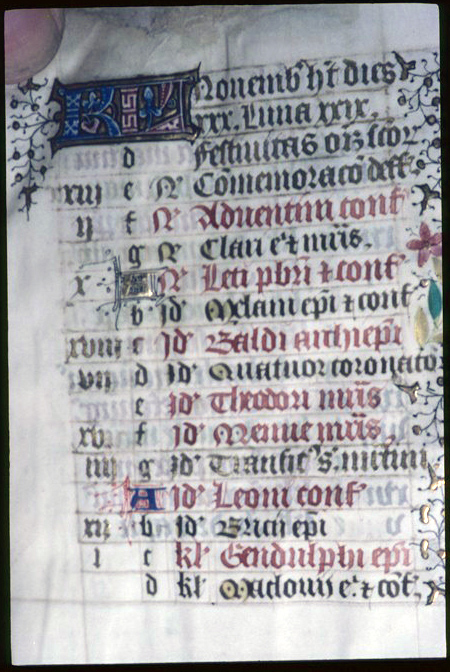 KL Novemb' h't dies
xxx. Luna xxix.
d Festivitas om̄ s̄cor
xiij e N' Cōmemoracō def̄c
ij f N' Adventini conf
g N' Clari e' et mr̄is.
x A N' Leti pbr̄i ⁊ conf
b jd' Melani ep̄i ⁊ conf
xviij c jd' Baldi archiep̄i
vij d Jd' Quatuor coronato
e jd' Theodori mr̄is
xv f jd' Menne mr̄is.
iiij g jd' Transit' s. martini
A jd' Leoni conf
xij b jd' Bricii ep̄i
j c kl' Gendulphi ep̄i
d kl' Maclovii e'. ⁊ cōf.